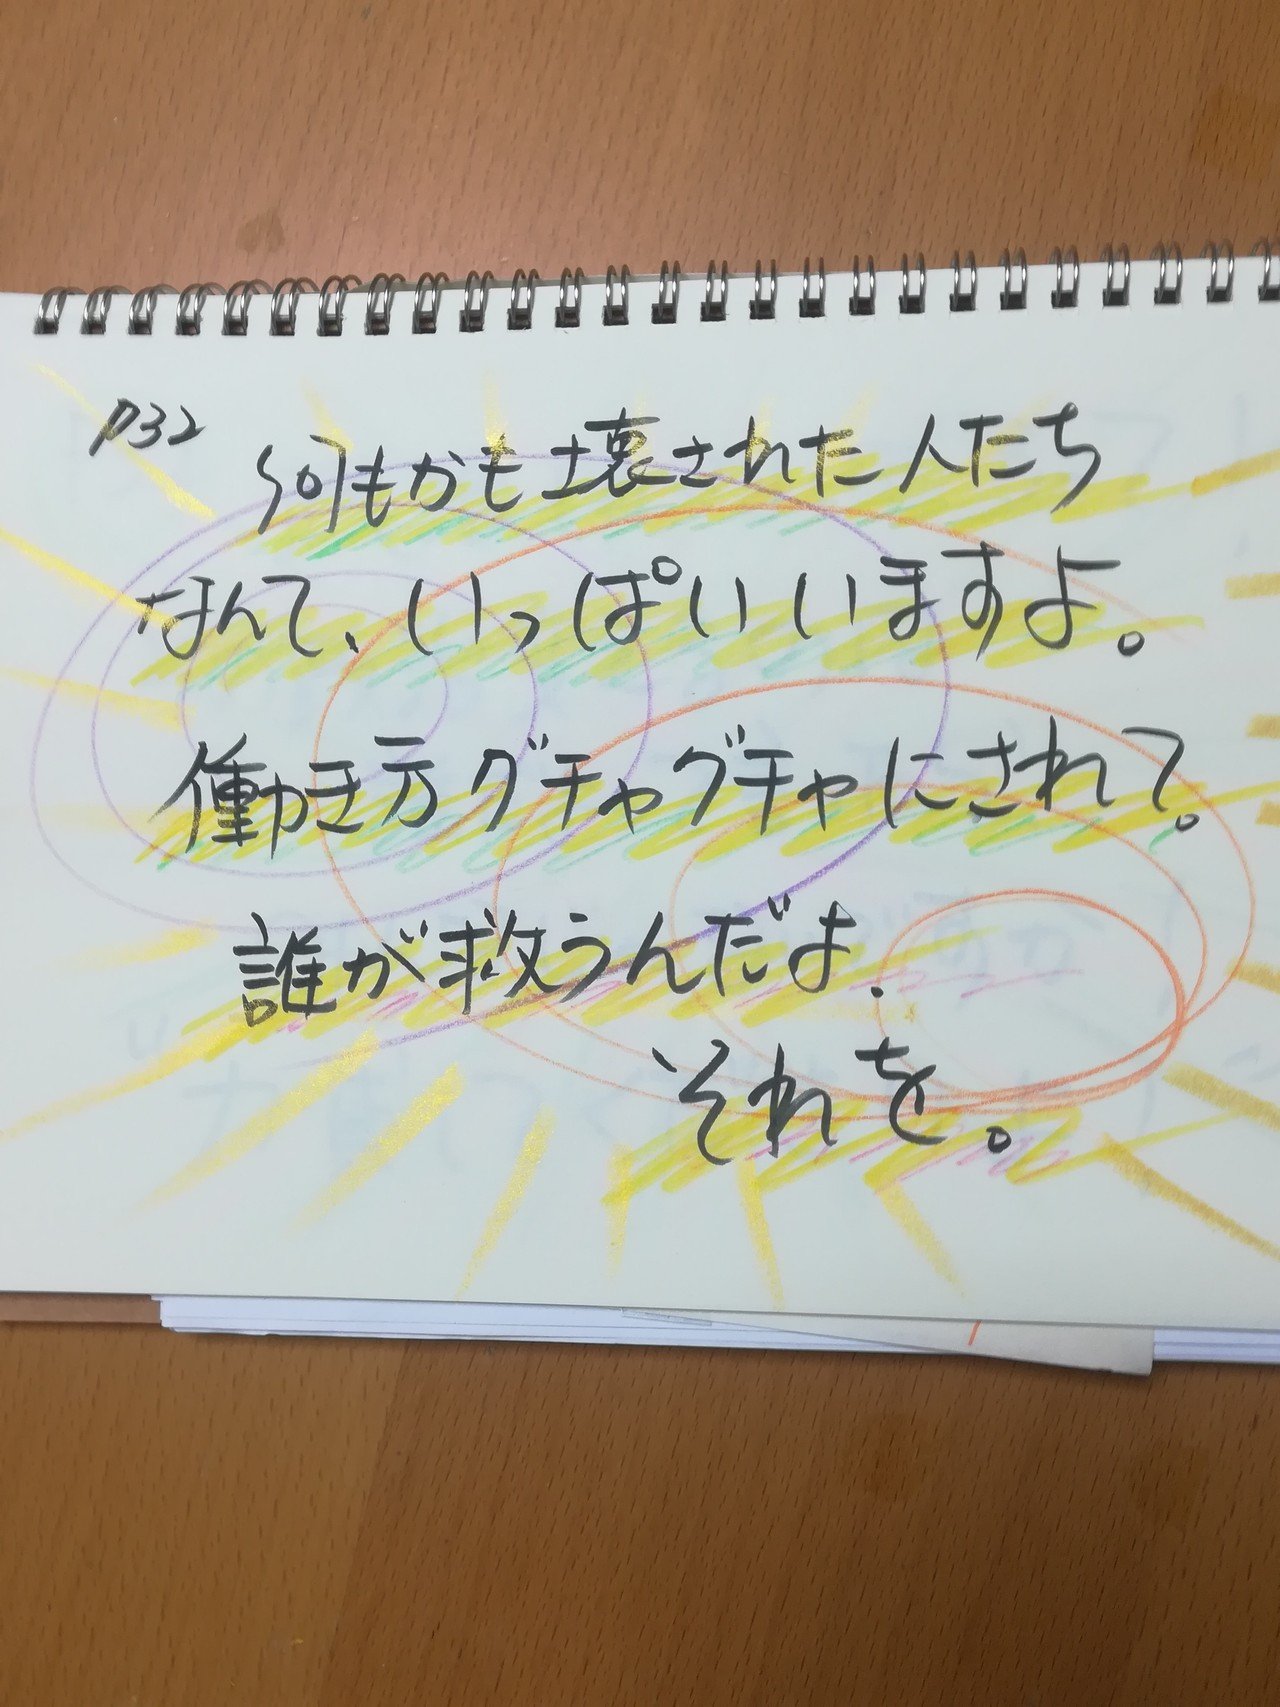 P32
何もかも壊された人たち
なんて、いっぱいいますよ。
働き方グチャグチャにされて。
誰が救うんだよ、
それを。